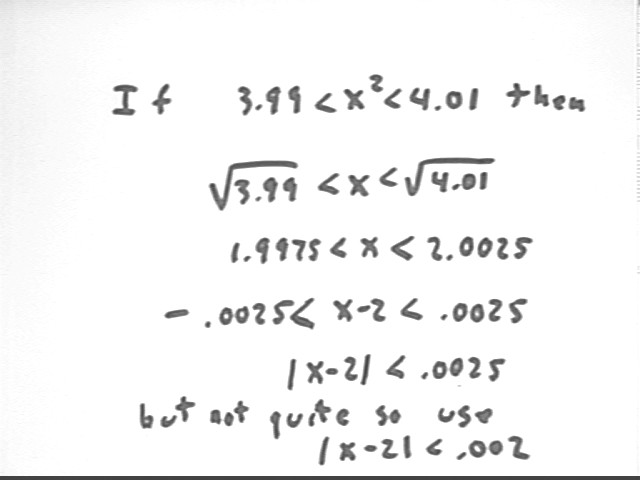 If 3.99 < x² < 4.01 then
√3.99 < x < √4.01
1.9975 < x < 2.0025
- .0025 < x-2 < .0025
|x-2| < .0025
but not quite so use
|x-2| < .002